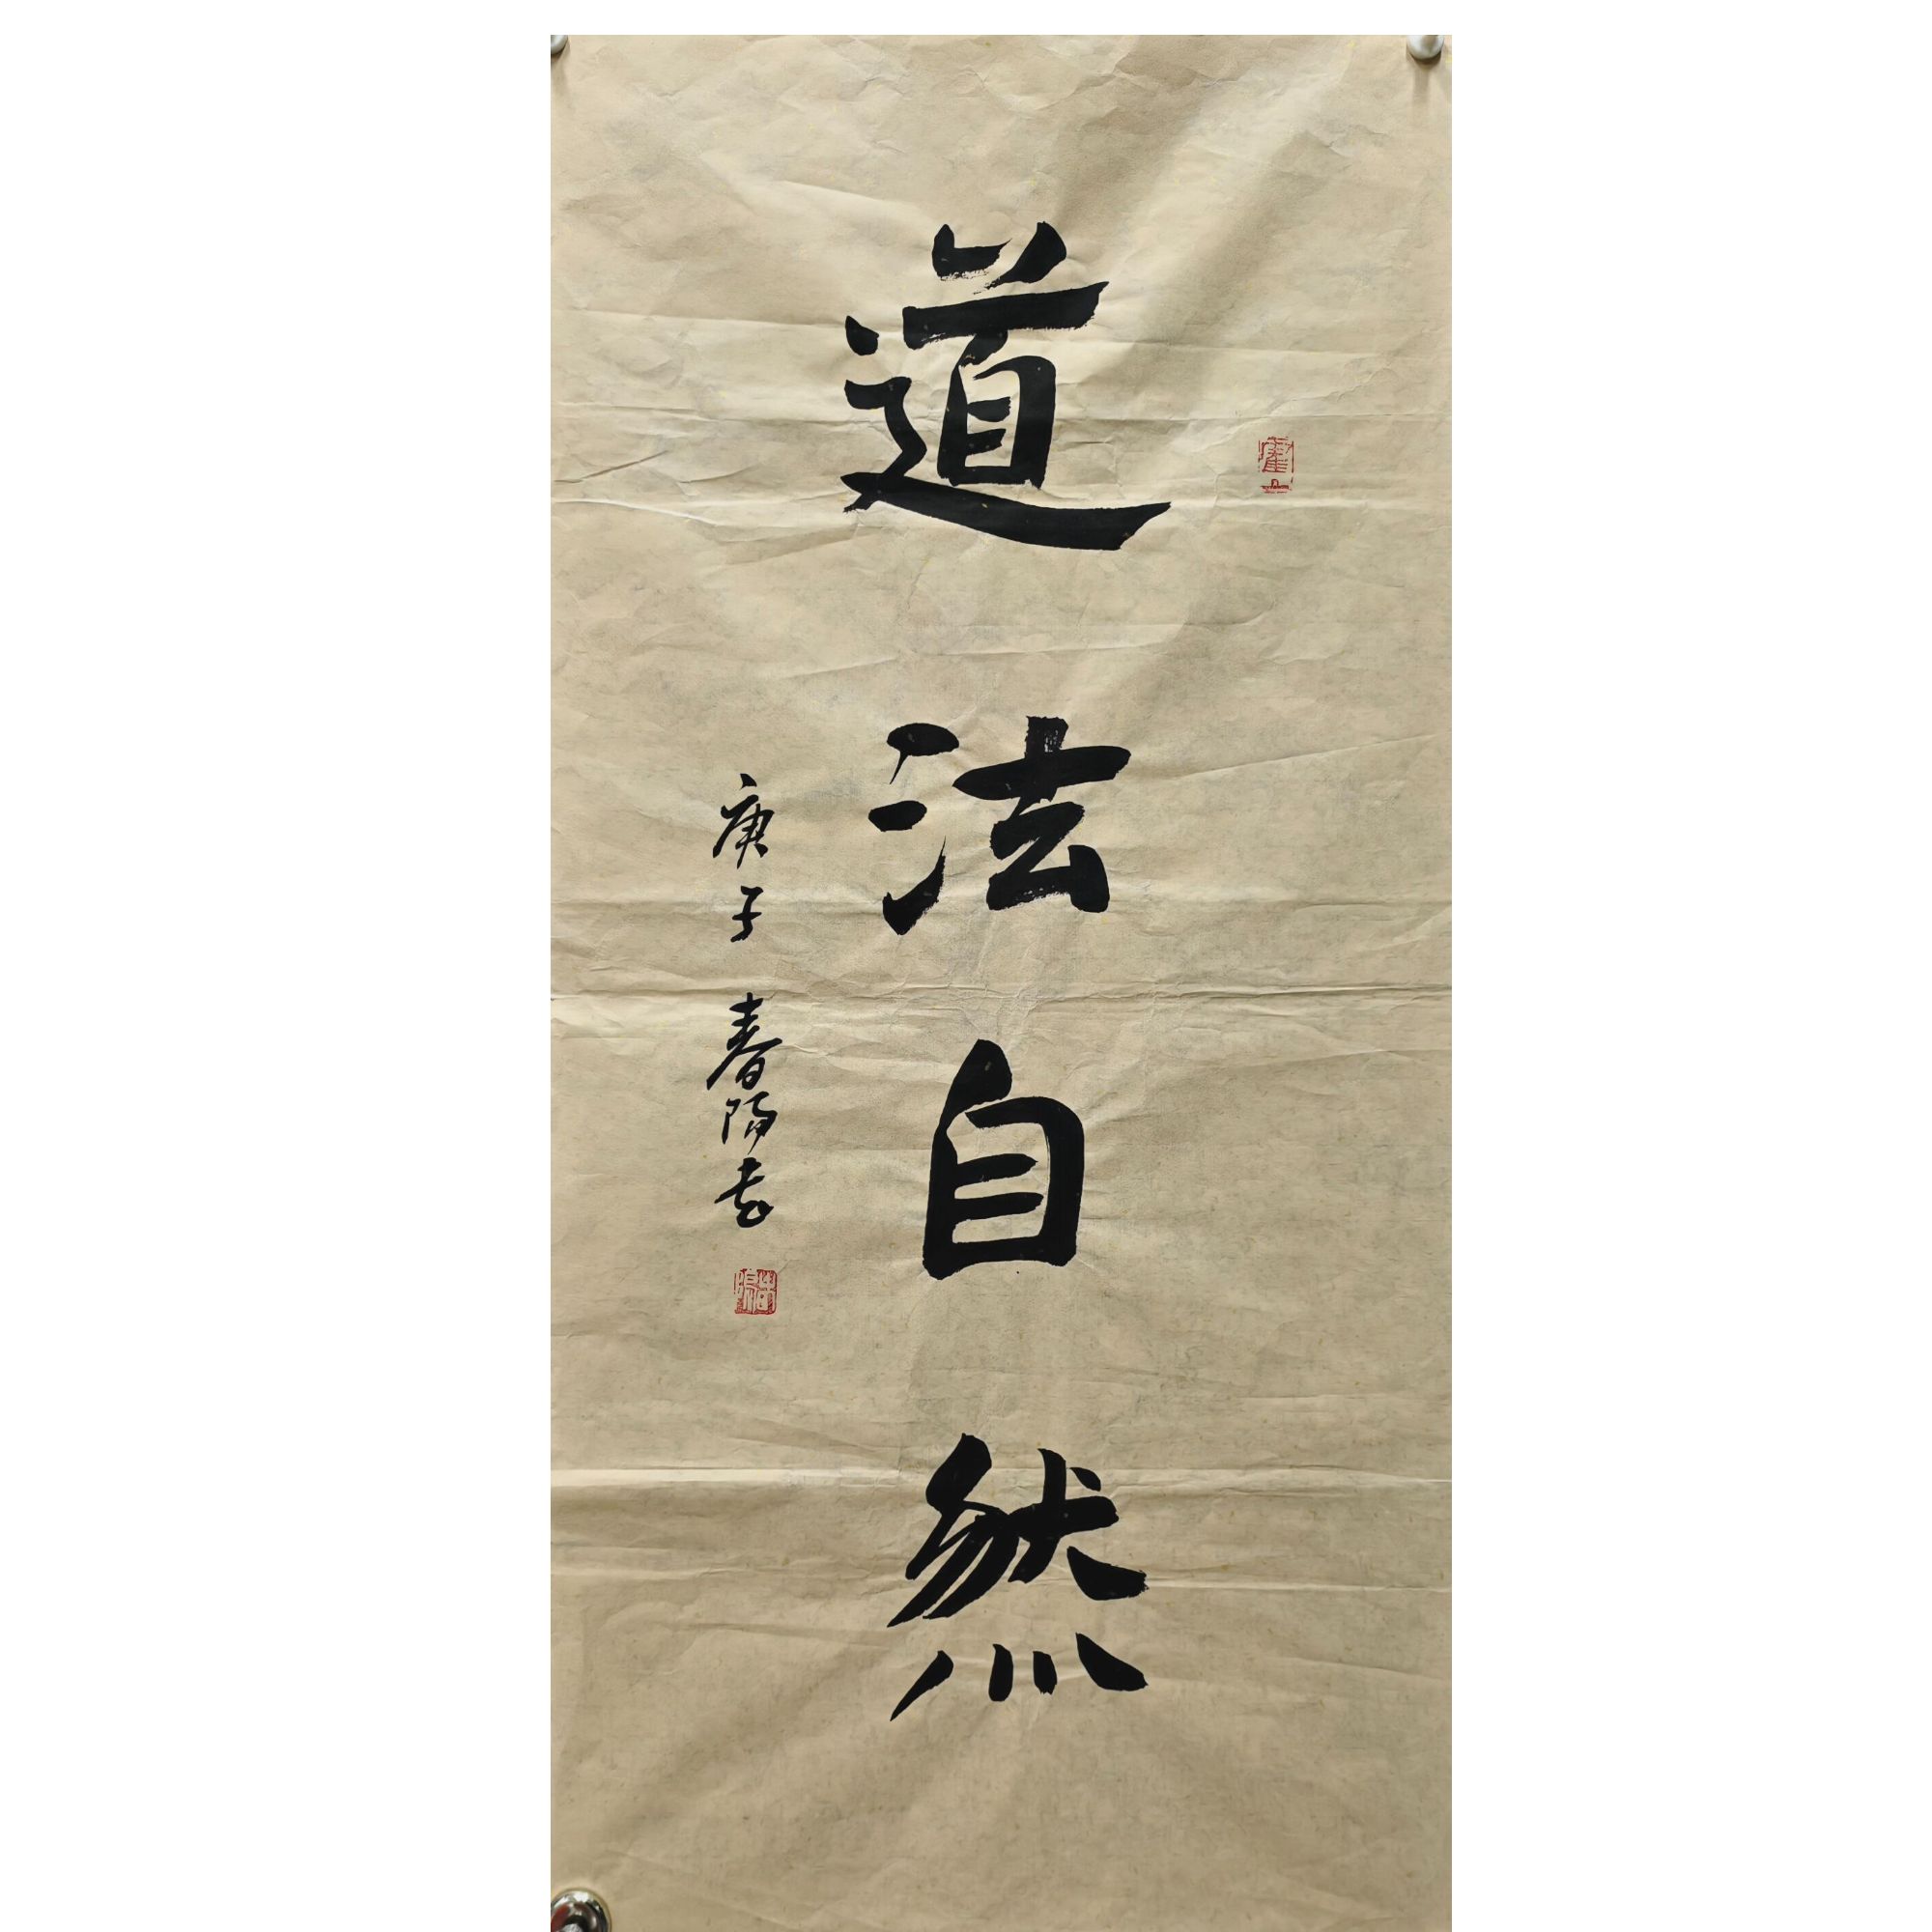 道法自然
庚子 春陽书